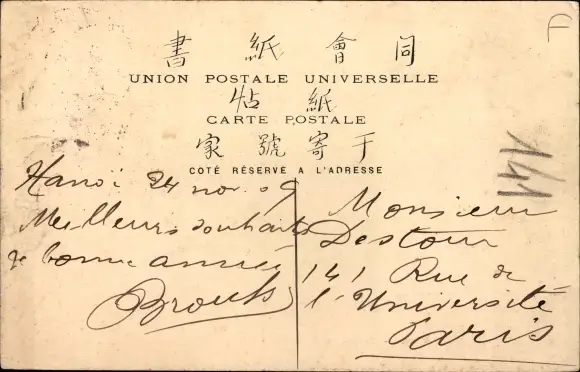 書 紙 會 同
UNION POSTALE UNIVERSELLE
帖 紙
CARTE POSTALE
家 號 寄 于
COTÉ RÉSERVÉ A L'ADRESSE
Hanoi 24 nov. 09
Meilleurs souhaits
de bonne année
Monsieur
Destour
141 Rue de
l'Université
Paris
141